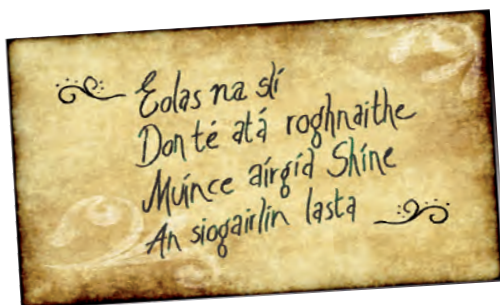 Eolas na slí
Don té atá roghnaithe
Muince airgid Shine
An siogairlín lasta